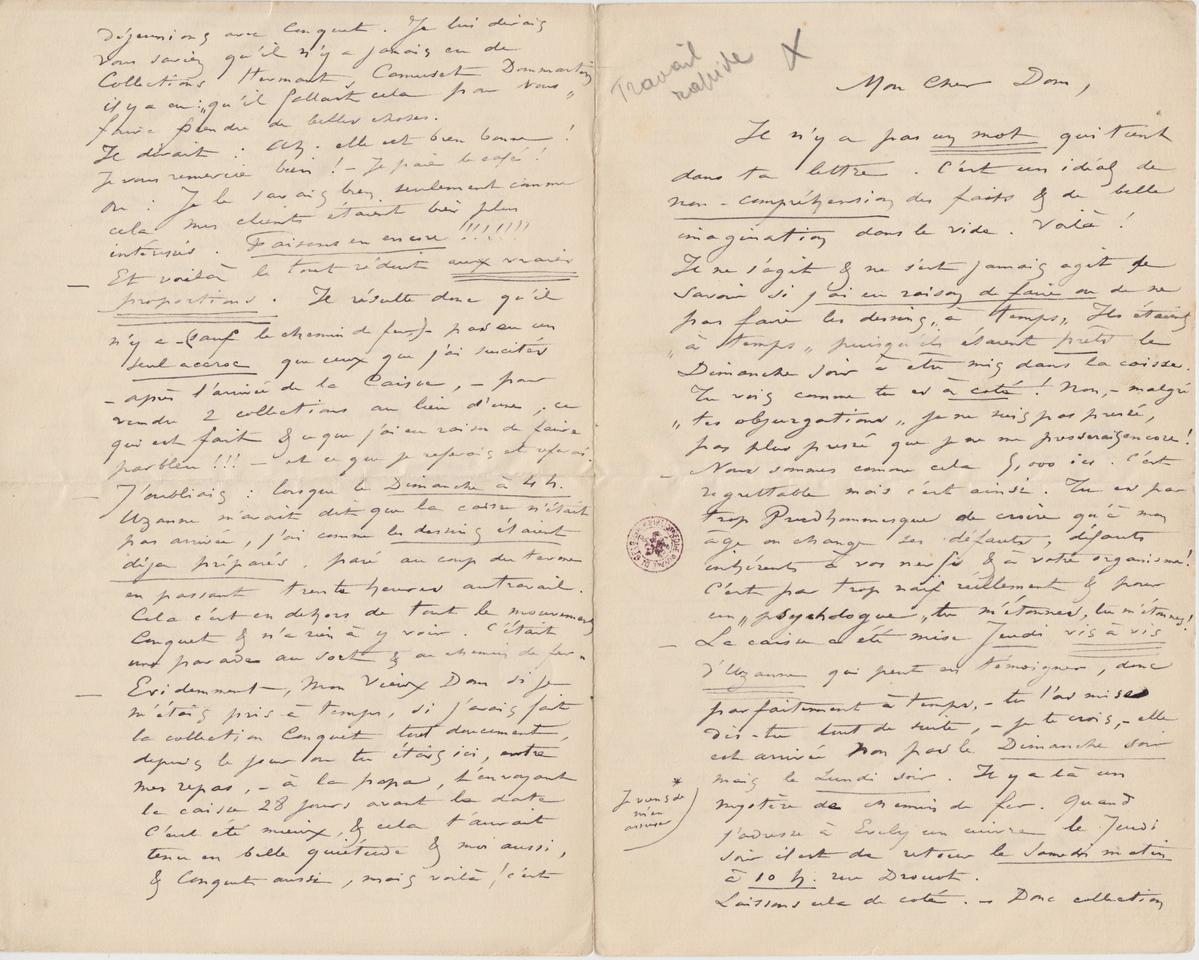 Travail
rapide X
Mon Cher Dom,
Il n'y a pas un mot qui tient
dans ta lettre. C'est un idéal de
non-compréhension des faits & de belle
imagination dans le vide. Voilà !
Il ne s'agit & ne s'est jamais agit de
savoir si j'ai eu raison de faire ou de ne
pas faire les dessins „à temps„ Ils étaient
„à temps„ puisqu'ils étaient prêts le
Dimanche soir à être mis dans la caisse.
Tu vois comme tu es à coté ! Non, - malgré
„tes objurgations„ je ne suis pas pressé,
pas plus pressé que je ne me presserais encore !
– Nous sommes comme cela 5,000 ici. C'est
regrettable mais c'est ainsi. Tu es par
trop Prudhommesque de croire qu'à mon
âge on change ses défauts, défauts
inhérents à vos nerfs & à votre organisme !
C'est par trop naïf réellement & pour
un „psychologue„ tu m'étonnes, tu m'étonnes !
– La caisse a été mise Jeudi vis à vis
d'Uzanne qui peut en témoigner, donc
parfaitement à temps, - tu l'as mise
dis-tu tout de suite, - je te crois, - elle
est arrivée non pas le Dimanche soir
mais le Lundi soir. Il y a là un
* Je viens de
m'en
assurer
mystère de chemin de fer. Quand
j'adresse à Evely un cuivre le Jeudi
soir il est de retour le Samedi matin
à 10 h. rue Drouot.
Laissons cela de coté. – Donc collection
Déjeunions avec Conquet. Je lui dirais
vous saviez qu'il n'y a jamais eu de
Collections Hermant, Camuset Dommartin
il y a eu : „qu'il fallait cela pour vous„
faire prendre de belles choses.
Il dirait : Ah. elle est bien bonne !
Je vous remercie bien ! – Je paie le café !
ou : Je le savais bien, seulement comme
cela mes clients étaient bien plus
intéressés. Faisons en encore !!!!!!!
– Et voilà le tout réduit aux vraies
proportions. Il résulte donc qu'il
n'y a – (sauf le chemin de fer) – pas eu un
seul accroc que ceux que j'ai suscités
– après l'arrivée de la Caisse, – pour
vendre 2 collections au lieu d'une, ce
qui est fait & ce que j'ai eu raison de faire
parbleu !!! – et ce que je referais et referai.
– J'oubliais : lorsque le Dimanche à 4 h.
Uzanne m'avait dit que la caisse n'était
pas arrivée, j'ai comme les dessins étaient
déjà préparés, paré au coup du terme
en passant trente heures au travail.
Cela c'est en dehors de tout le mouvement
Conquet & n'a rien à y voir. C'était
une parade au sort & au chemin de fer.
– Evidemment, Mon Vieux Dom si je
m'étais pris à temps, si j'avais fait
la collection Conquet tout doucement,
depuis le jour où tu étais ici, entre
mes repas, – à la papa, t'envoyant
la caisse 28 jours avant la date
C'eut été mieux, & cela t'aurait
tenu en belle quiétude & moi aussi,
& Conquet aussi, mais voilà ! c'est